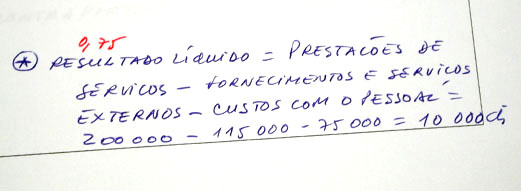 0,75
* RESULTADO LíQUIDO = PRESTAÇÕES DE
SERVICOS - FORNECIMENTOS E SERVICOS
EXTERNOS - CUSTOS COM O PESSOAL =
200 000 - 115 000 - 75 000 = 10 000